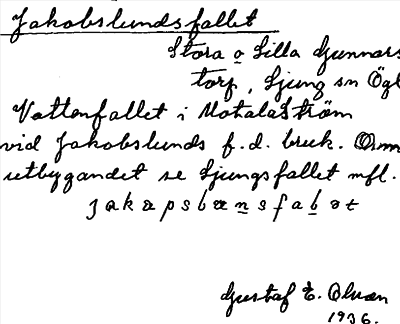 Jakobslundsfallet
Stora o Lilla Gunnars
torp, Ljung sn Ögl
Vattenfallet i Motala Ström
vid Jakobslunds f.d. bruk. Om
utbyggandet se Ljungsfallet mfl.
Gustaf E. Olsson
1936.